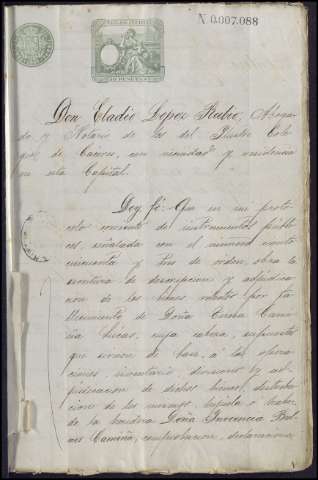 N. 0.007.088
Don Eladio Lopez Rubio, Aboga
do y Notario de los del Ilustre Cole
gio de Cáceres, con vecindad y residencia
en esta Capital.
Doy fé: Que en mi proto
colo corriente de instrumentos públi
cos, señalada con el número ciento
cincuenta y tres de orden, obra la
escritura de descripcion y adjudica
cion de los bienes relictos por fa
llecimiento de Doña
cuya cabeza, supuestos
que sirven de base á las opera
ciones, inventario, divisorio y ad
judicacion de dichos bienes, distribu
cion de los mismos, hijuela ó haber
de la heredera Doña Inocencia
Camiña, comprobacion, declaraciones